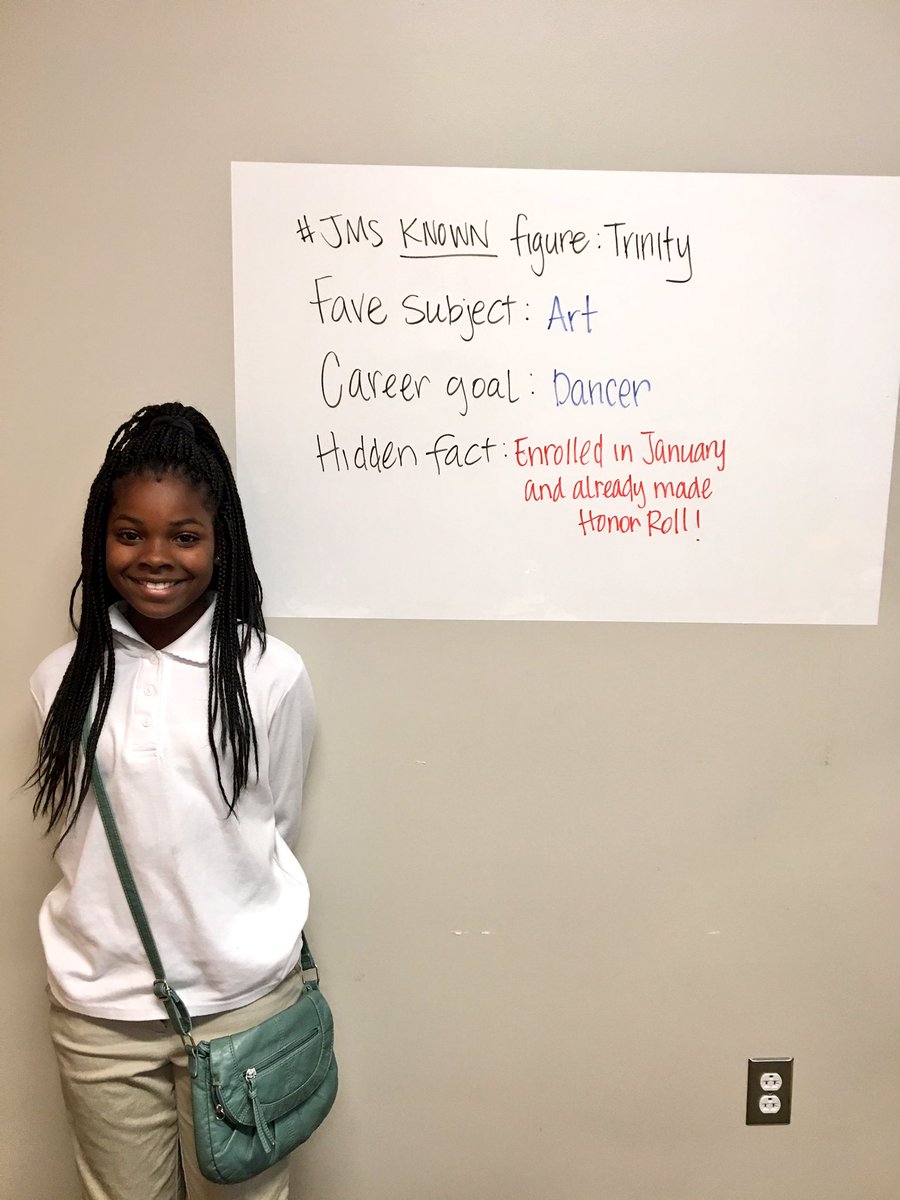 #JMS KNOWN figure: Trinity
Fave Subject: Art
Career goal: Dancer
Hidden fact: Enrolled in January
and already made
Honor Roll!